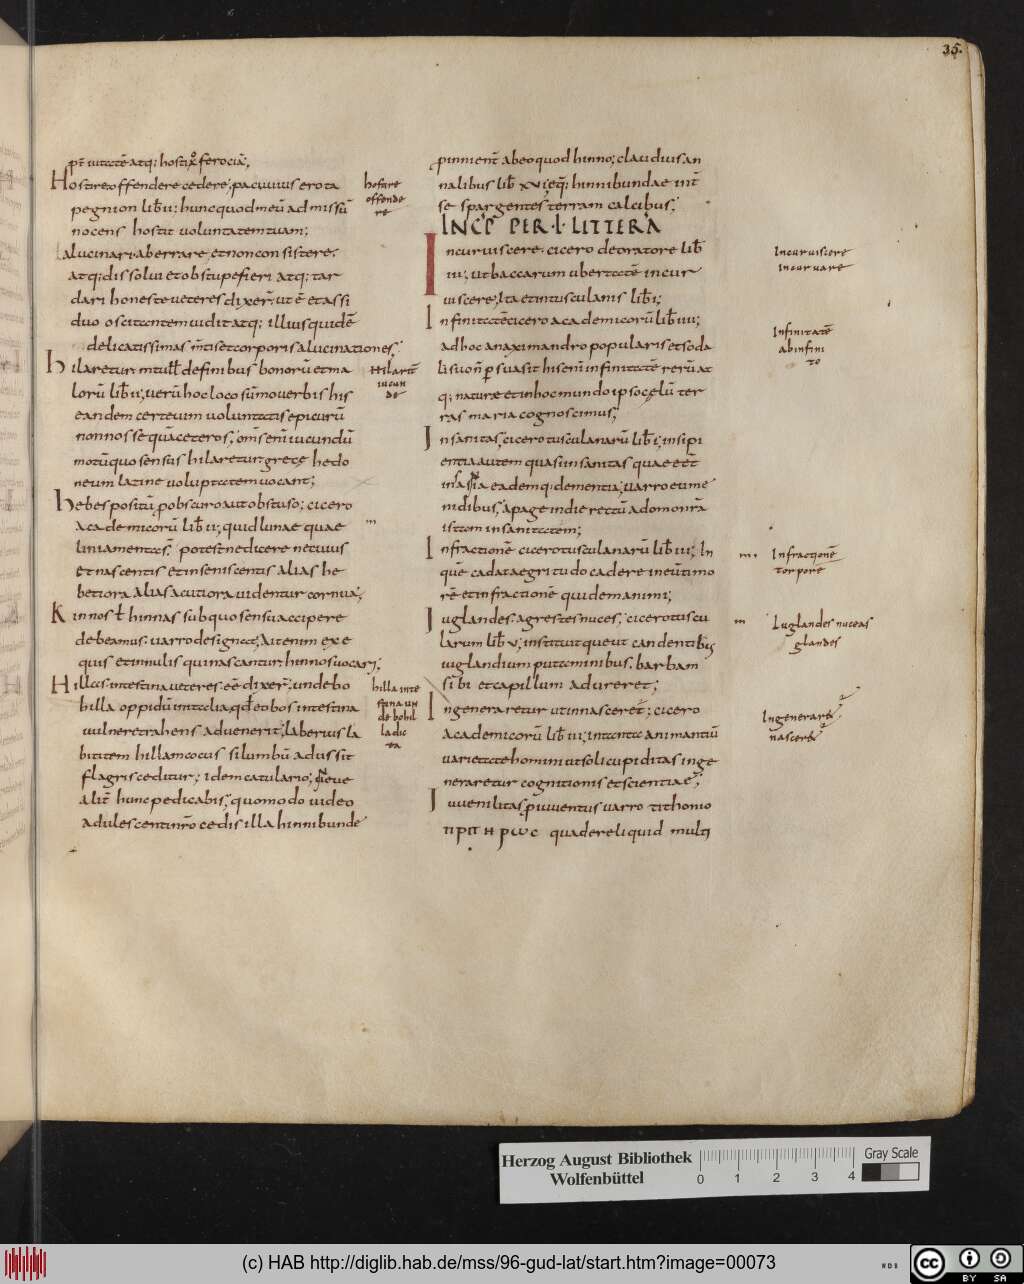 35.
Hostire offendere cedere; pacuuius erota
pegnion lib̄ ii; hunc quod meū admissū
nocens hostit uoluntatem tuam;
alucinari aberrare, et non consistere,
atq; dissolui et obstupefieri atq; tar
dari honeste ueteres dixer̄; ut ē et assi
duo oscitantem uidit atq; illius quidē
delicatissimas m̄tis et corporis alucinationes;
Hilaretur m̄ tull̄ de finibus bonorū et ma
lorū lib̄ ii; uerū hoc loco sūmo uerbis his
eandem certe uim uoluntatis epicurū
non nosse quā ceteros; om̄sem̄ iucundū
motū quo sensus hilaretur grece hedo
nem latine uoluptatem uocant;
Hebes positū p obscuro aut obstuso; cicero
Academicorū lib̄ ii; quid lunae quae
liniamenta s̄ potesne dicere ne cuius
et nascentis et inseniscentis alias he
betiora alias acutiora uidentur cornua;
hinnas sub quo sensu accipere
debeamus; uarro designat; Ait enim ex e
quis et in mulis qui nascantur hinnos uocari;
Hillas intestina ueteres eē dixer̄; unde bo
billa oppidū in italia; qd̄ eo bos intestina
uulnere trahens aduenerit; laberius la
bititem hillam cocus si lumbū adussit
flagris ceditur; idem catulario;
alit̄ hunc pedicabis; quomodo uideo
adulescenti nr̄o cedis illa hinnibunde
hostire
offende
re
Hilarit̄
iucun
de
hilla inte
stina un
de bobil
la dic
ta
nalibus lib̄ xvi; eq̄; hinnibundae int̄
se spargentes terram calcibus;
INCP̄ PER ·I· LITTERĀ
Incuruiscere · cicero de oratore lib̄
iii; ut baccarum ubertate incur
uiscere; Ita et in tusculanis lib̄ i;
Infinitatē cicero academicorū lib̄ iiii;
ad hoc anaximandro populari et soda
q; naturae et in hoc mundo ipso celū ter
ras maria cognoscimus;
Insanitas; cicero tusculanarū lib̄ i; insipi
entia autem quasi insanitas quae eēt
eademq; dementia; uarro eume
nidibus; apage in dierectū a domo nr̄a
istam insanitatem;
Infractionē cicero tusculanarū lib̄ iii; In
quē cadat aegritudo cadere in eū timo
rē et infractionē quidem animi;
Iuglandes · agrestes nuces; cicero tuscu
larum lib̄ v; instituit que ut candentibus
iuglandium putaminibus; barbam
sibi et capillum adureret;
Ingeneraretur ut innasceret̄; cicero
Academicorū lib̄ iii; in tanta animantiū
uarietate homini ut soli cupiditas inge
neraretur cognitionis et scientiae;
Iuuenilitas p iuuentus uarro tithonio
quad ereliquid multi
Incuruiscere
Incuruare
Infinitatē
ab infini
to
Infractionē
torpore
Iuglandes nuceas
glandes
Ingenerare
nascere
Herzog August Bibliothek
Wolfenbüttel
0 1 2 3 4
Gray Scale
(c) HAB http://diglib.hab.de/mss/96-gud-lat/start.htm?image=00073
WDB
cc
BY SA